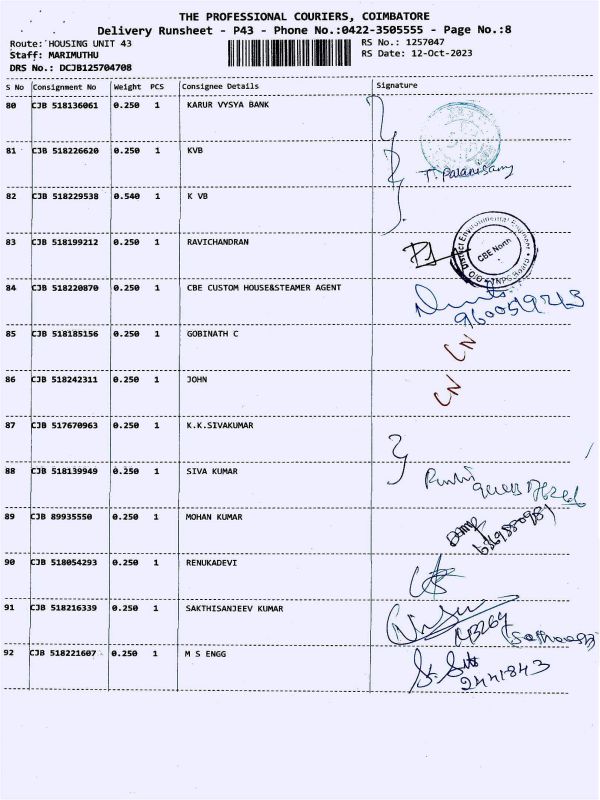 THE PROFESSIONAL COURIERS, COIMBATORE
Delivery Runsheet - P43 - Phone No.:0422-3505555 - Page No.:8
Route: HOUSING UNIT 43 RS No.: 1257047
Staff: MARIMUTHU RS Date: 12-Oct-2023
DRS No.: DCJB125704708
S No Consignment No Weight PCS Consignee Details Signature
80 CJB 518136061 0.250 1 KARUR VYSYA BANK
81 CJB 518226620 0.250 1 KVB
T. Palanisamy
82 CJB 518229538 0.540 1 K VB
83 CJB 518199212 0.250 1 RAVICHANDRAN
District Environmental Engineer
CBE North
84 CJB 518220870 0.250 1 CBE CUSTOM HOUSE&STEAMER AGENT
85 CJB 518185156 0.250 1 GOBINATH C CN
86 CJB 518242311 0.250 1 JOHN CN
87 CJB 517670963 0.250 1 K.K.SIVAKUMAR
88 CJB 518139949 0.250 1 SIVA KUMAR
89 CJB 89935550 0.250 1 MOHAN KUMAR
90 CJB 518054293 0.250 1 RENUKADEVI
91 CJB 518216339 0.250 1 SAKTHISANJEEV KUMAR
92 CJB 518221607 0.250 1 M S ENGG
2441843